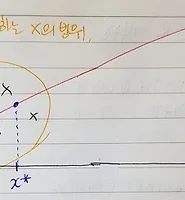 하는 X의 범위.
X
X
x*